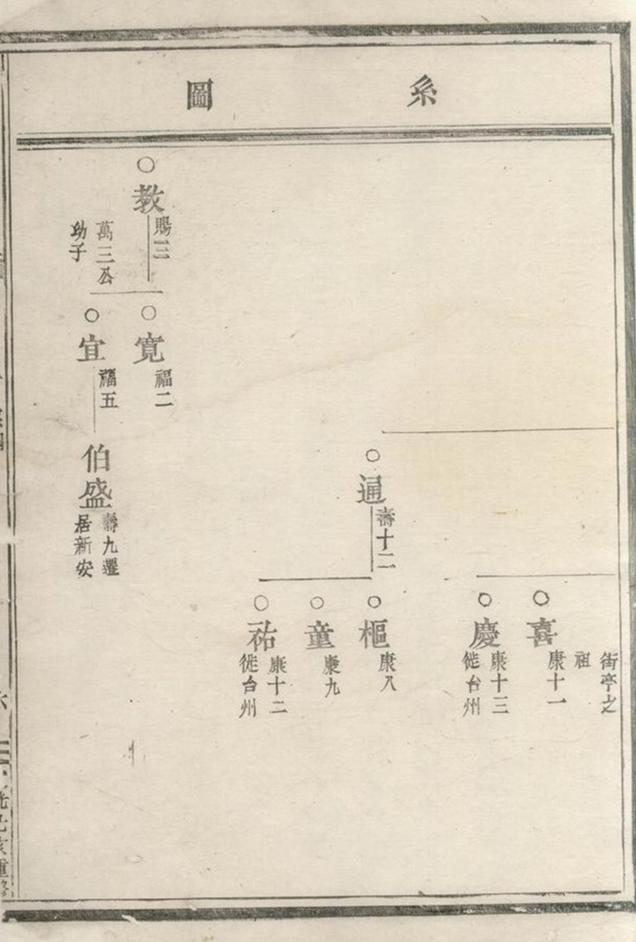 系圖
街亭之
祖
喜
康十一
慶
康十三
徙台州
通
壽十二
樞
康八
童
康九
祐
康十二
徙台州
教
賜三
萬三公
幼子
寛
福二
宜
福五
伯盛
壽九遷
居新安